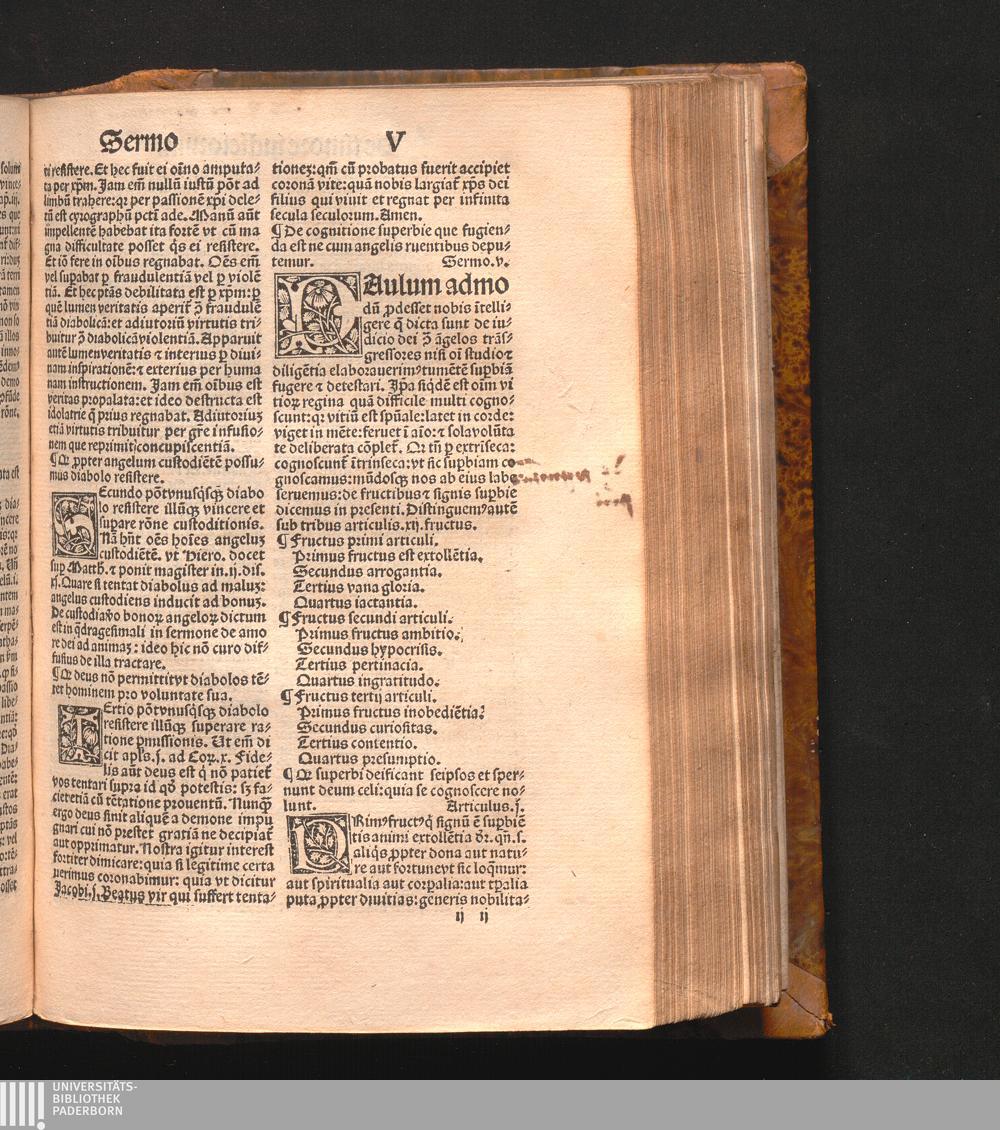 Sermo V
ri resistere. Et hec fuit ei oĩno amputa-
ta per xp̃m. Jam em̃ nullũ iustũ põt ad
limbũ trahere: qꝛ per passionẽ xp̃i dele-
tũ est cyrographũ pctĩ ade. Manũ aũt
impellentẽ habebat ita fortẽ vt cũ ma
gna difficultate posset q̃s ei resistere.
Et iõ fere in oĩbus regnabat. Oẽs em̃
vel supabat ꝑ fraudulentiã vel ꝑ violẽ
tiã. Et hec ptãs debilitata est ꝑ xp̃m: ꝑ
quẽ lumen veritatis aperit̃ ↄ̃ fraudulẽ
tiã diabolicã: et adiutoriũ virtutis tri-
buitur ↄ̃ diabolicã violentiã. Apparuit
autẽ lumen veritatis ⁊ interius ꝑ diui-
nam inspirationẽ: ⁊ exterius per huma
nam instructionem. Jam em̃ oĩbus est
veritas propalata: et ideo destructa est
idolatrie q̃ prius regnabat. Adiutoriuꝫ
etiã virtutis tribuitur per gr̃e infusio-
nem que reprimit concupiscentiã.
¶ Qꝛ ꝓpter angelum custodiẽtẽ possu-
mus diabolo resistere.
SEcundo põt vnusq̃sqꝫ diabo
lo resistere illũqꝫ vincere et
supare rõne custoditionis.
Nã hñt oẽs hoĩes angeluꝫ
custodiẽtẽ. vt Hiero. docet
sup Matth. ⁊ ponit magister in .ij. dis.
xj. Quare si tentat diabolus ad maluꝫ:
angelus custodiens inducit ad bonuꝫ.
De custodia v̊o bonoꝝ angeloꝝ dictum
est in q̃dragesimali in sermone de amo
re dei ad animaꝫ: ideo hic nõ curo dif-
fusius de illa tractare.
¶ Qꝛ deus nõ permittit vt diabolos tẽ-
tet hominem pro voluntate sua.
TErtio põt vnusq̃sqꝫ diabolo
resistere illũqꝫ superare ra-
tione ꝑmissionis. Ut em̃ di
cit apl̃s .j. ad Coꝝ. x. Fide-
lis aũt deus est q̇ nõ patiet̃
vos tentari supra id qd̃ potestis: sꝫ fa-
ciet etiã cũ tẽtatione prouentũ. Nunqꝫ
ergo deus sinit aliquẽ a demone impu
gnari cui nõ prestet gratiã ne decipiat̃
aut opprimatur. Nostra igitur interest
fortiter dimicare: quia si legitime certa
uerimus coronabimur: quia vt dicitur
Jacobi .j. Beatus vir qui suffert tenta-
tioneꝫ: qm̃ cũ probatus fuerit accipiet
coronã vite: quã nobis largiat̃ xp̃s dei
filius qui viuit et regnat per infinita
secula seculorum. Amen.
¶ De cognitione superbie que fugien-
da est ne cum angelis ruentibus depu-
temur. Sermo .v.
PAulum admo
dũ ꝓdesset nobis ĩtelli-
gere q̃ dicta sunt de iu-
dicio dei ↄ̃ ãgelos trãs-
gressores nisi oĩ studio ⁊
diligẽtia elaborauerimꝰ tumẽtẽ supbiã
fugere ⁊ detestari. Ip̃a siq̃dẽ est oĩm vi
tioꝝ regina quã difficile multi cogno-
scunt: qꝛ vitiũ est sp̃uale: latet in corde:
viget in mẽte: feruet ĩ aĩo: ⁊ sola volũta
te deliberata cõplet̃. Qꝛ tñ ꝑ extriseca:
cognoscunt̃ ĩtrinseca: vt sic supbiam co
gnoscamus: mũdosqꝫ nos ab eius labe
seruemus: de fructibus ⁊ signis supbie
dicemus in presenti. Distinguemꝰ autẽ
sub tribus articulis .xij. fructus.
¶ Fructus primi articuli.
Primus fructus est extollẽtia.
Secundus arrogantia.
Tertius vana gloria.
Quartus iactantia.
¶ Fructus secundi articuli.
Primus fructus ambitio.
Secundus hypocrisis.
Tertius pertinacia.
Quartus ingratitudo.
¶ Fructus tertij articuli.
Primus fructus inobediẽtia.
Secundus curiositas.
Tertius contentio.
Quartus presumptio.
¶ Qꝛ superbi deificant seipsos et sper-
nunt deum celi: quia se cognoscere no-
lunt. Articulus .j.
PRimꝰ fructꝰ q̇ signũ ẽ supbiẽ
tis animi extollẽtia dr̃. qñ .s.
aliq̃s ꝓpter dona aut natu-
re aut fortune vt sic loq̃mur:
aut spiritualia aut corꝑalia: aut tꝑalia
puta ꝓpter diuitias: generis nobilita-
ij ij
UNIVERSITÄTS-
BIBLIOTHEK
PADERBORN